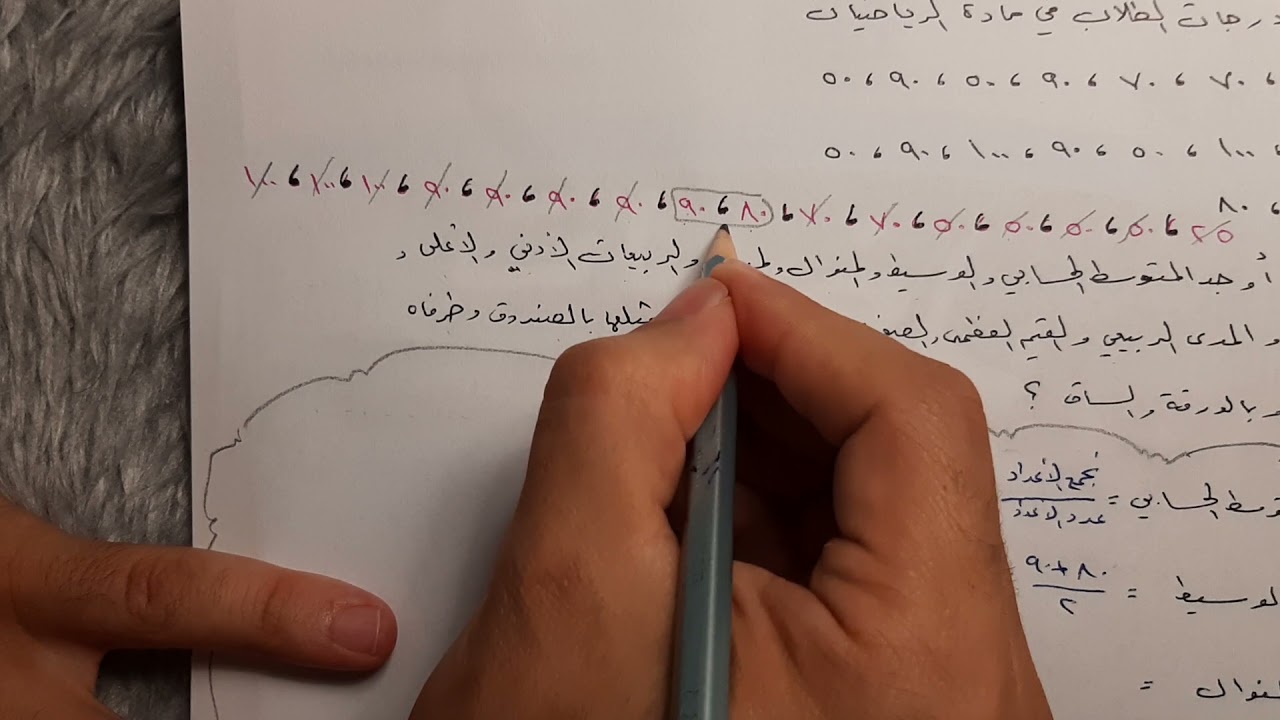 درجات الطلاب في مادة الرياضيات
، ٧٠ ، ٧٠ ، ٩٠ ، ٥٠ ، ٩٠ ، ٥٠
، ١٠٠ ، ٥٠ ، ٩٠ ، ١٠٠ ، ٩٠ ، ٥٠
، ٨٠
٢٥ ، ٥٠ ، ٥٠ ، ٥٠ ، ٥٠ ، ٧٠ ، ٧٠ ، ٨٠ ، ٩٠ ، ٩٠ ، ٩٠ ، ٩٠ ، ٩٠ ، ١٠٠ ، ١٠٠ ، ١٠٠
أوجد المتوسط الحسابي والوسيط والمنوال والربيعات الأدنى والأعلى و
و المدى الربيعي والقيم العظمى بالصندوق وطرفاه
بالورقة والساق ؟
الحسابي = نجمع الأعداد
عدد الأعداد
الوسيط = ٨٠ + ٩٠
٢
المنوال =